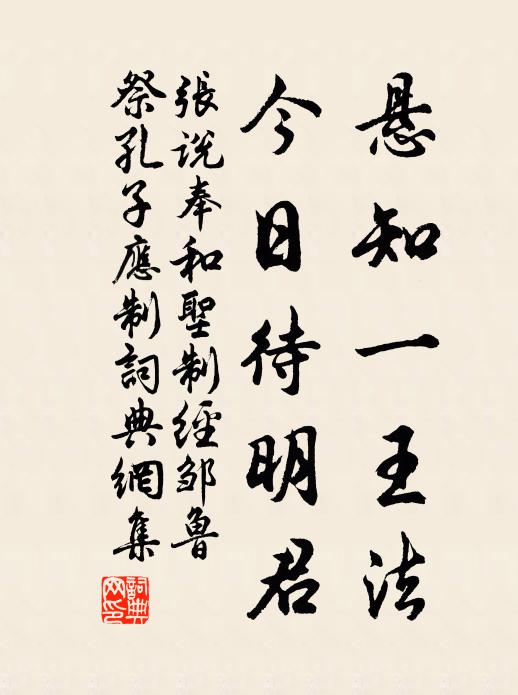 悬知一王法
今日待明君
張说奉和聖制經邹魯
祭孔子應制詞典網集
詞典網印